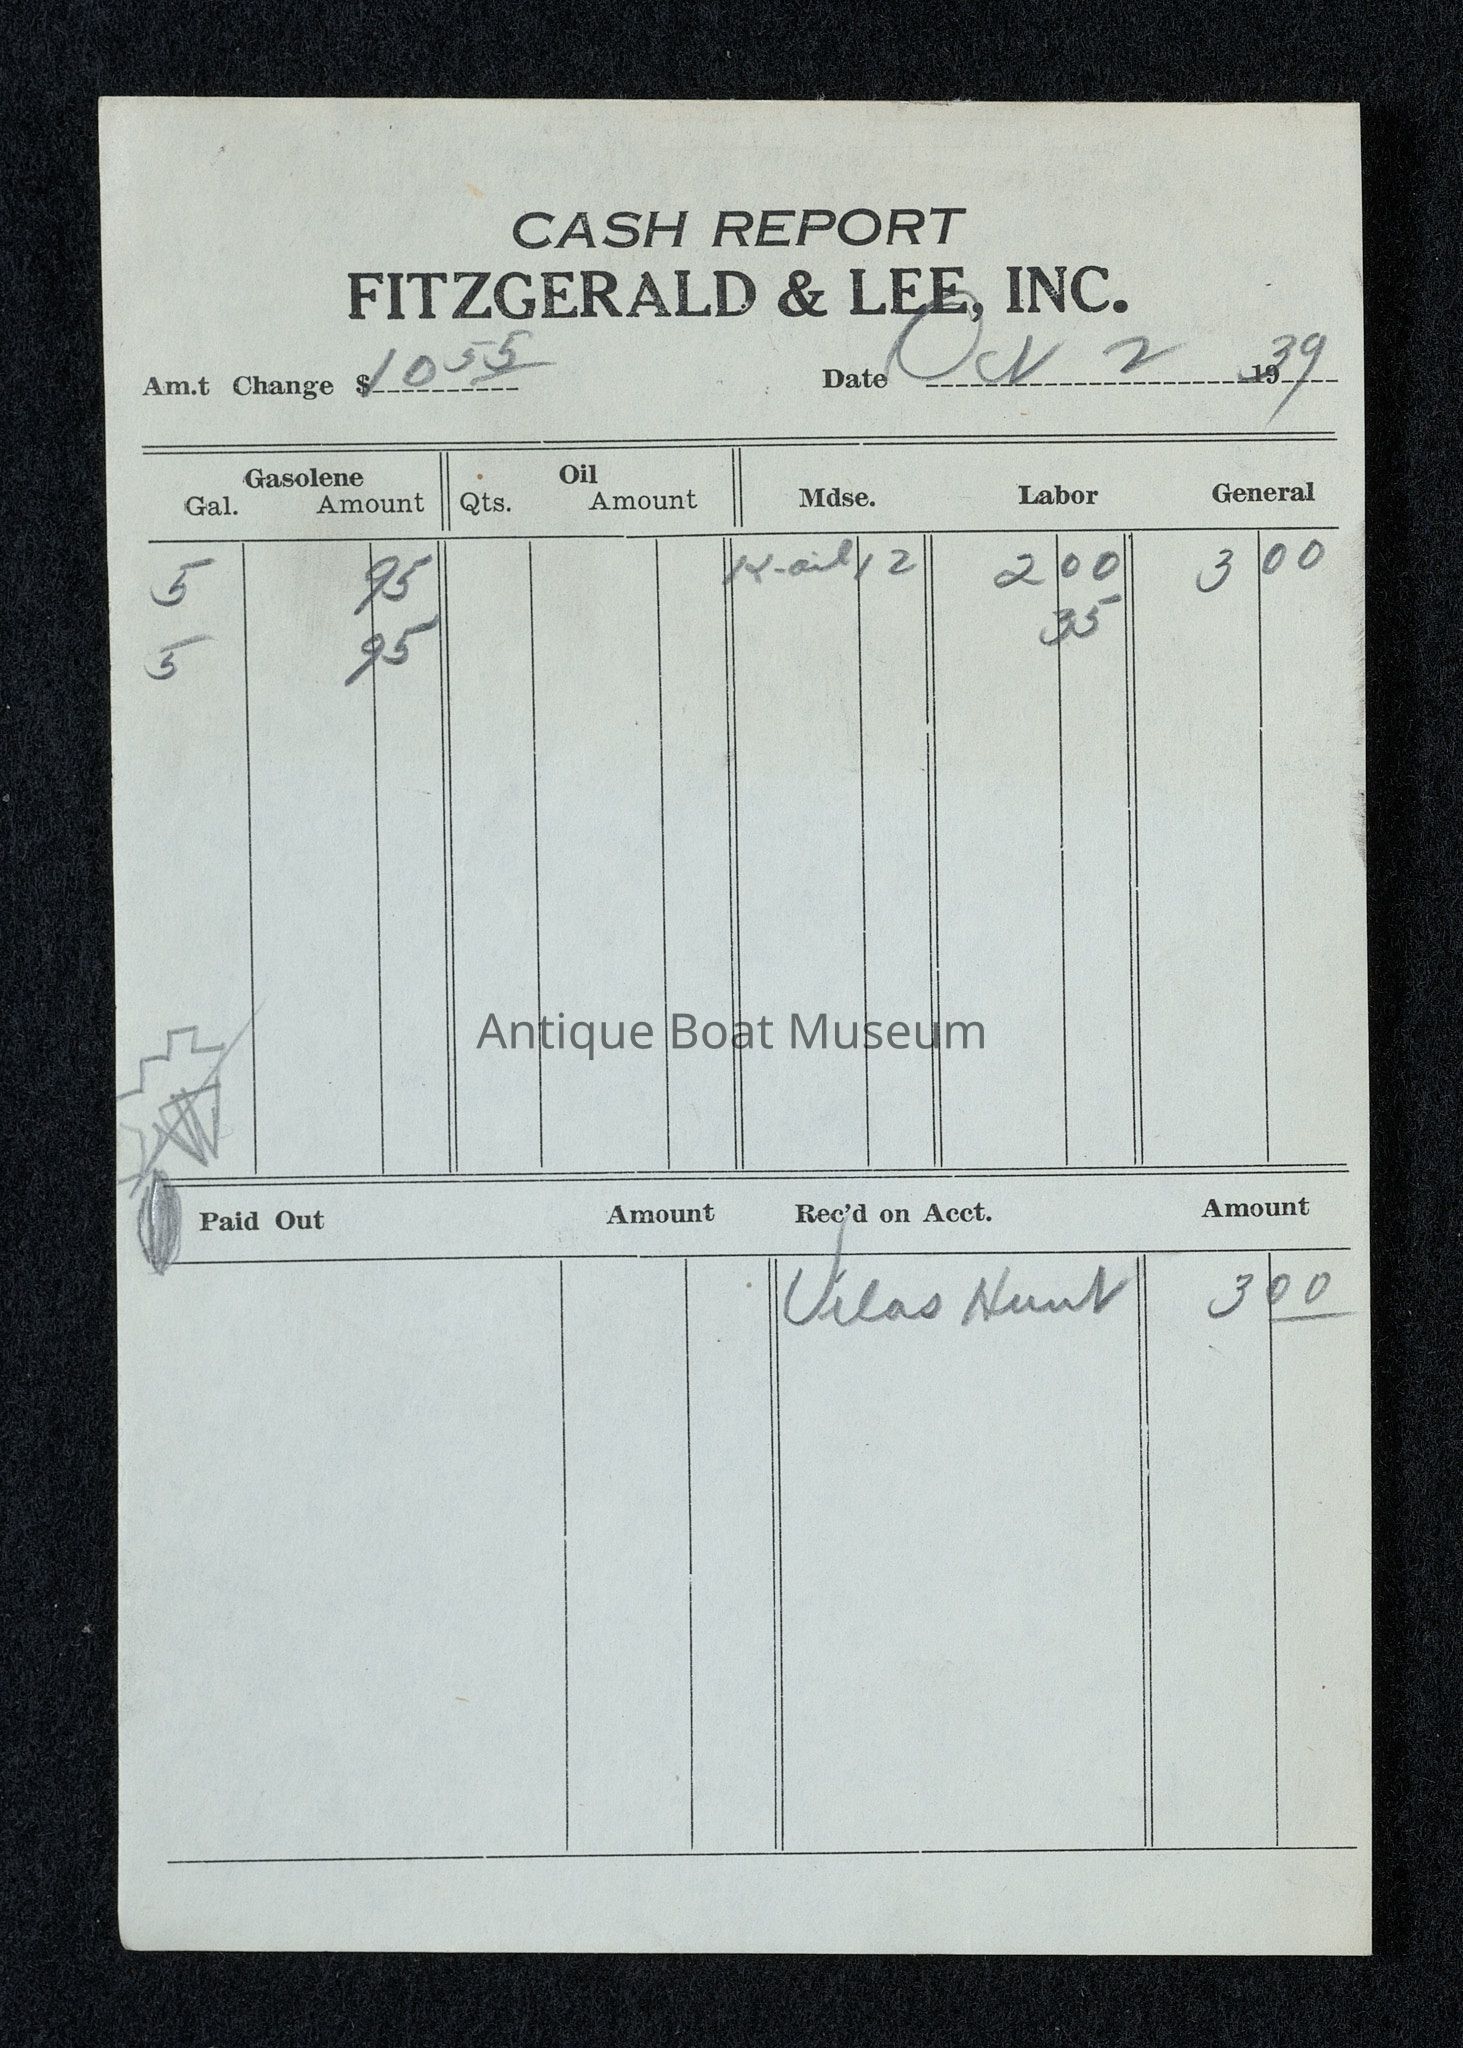 CASH REPORT
FITZGERALD & LEE, INC.
Am.t Change $ 10 55 Date Oct 2 1939
Gasolene Oil Mdse. Labor General
Gal. Amount Qts. Amount
5 95 K-oil 12 2 00 3 00
35
5 95
Antique Boat Museum
Paid Out Amount Rec'd on Acct. Amount
Vilas Hunt 3 00